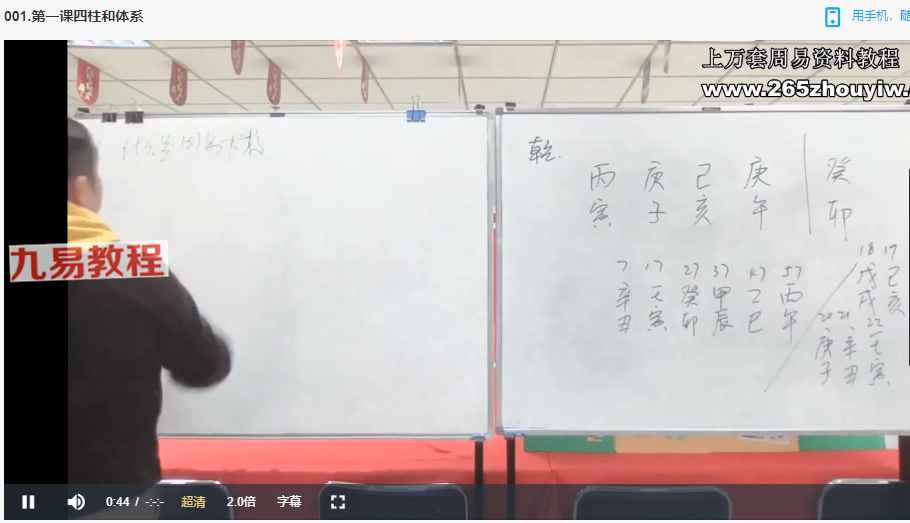 001.第一课四柱和体系
用手机，随
上万套周易资料教程
www.265zhouyiw.
九易教程
乾
丙 庚 己 庚 癸
寅 子 亥 午 卯
7 17 27 37 47 57
辛 壬 癸 甲 乙 丙
丑 寅 卯 辰 巳 午
18 17
戊 己
戌 亥
20 21 22
庚 辛 壬
子 丑 寅
0:44 / -:-:-
超清
2.0倍
字幕